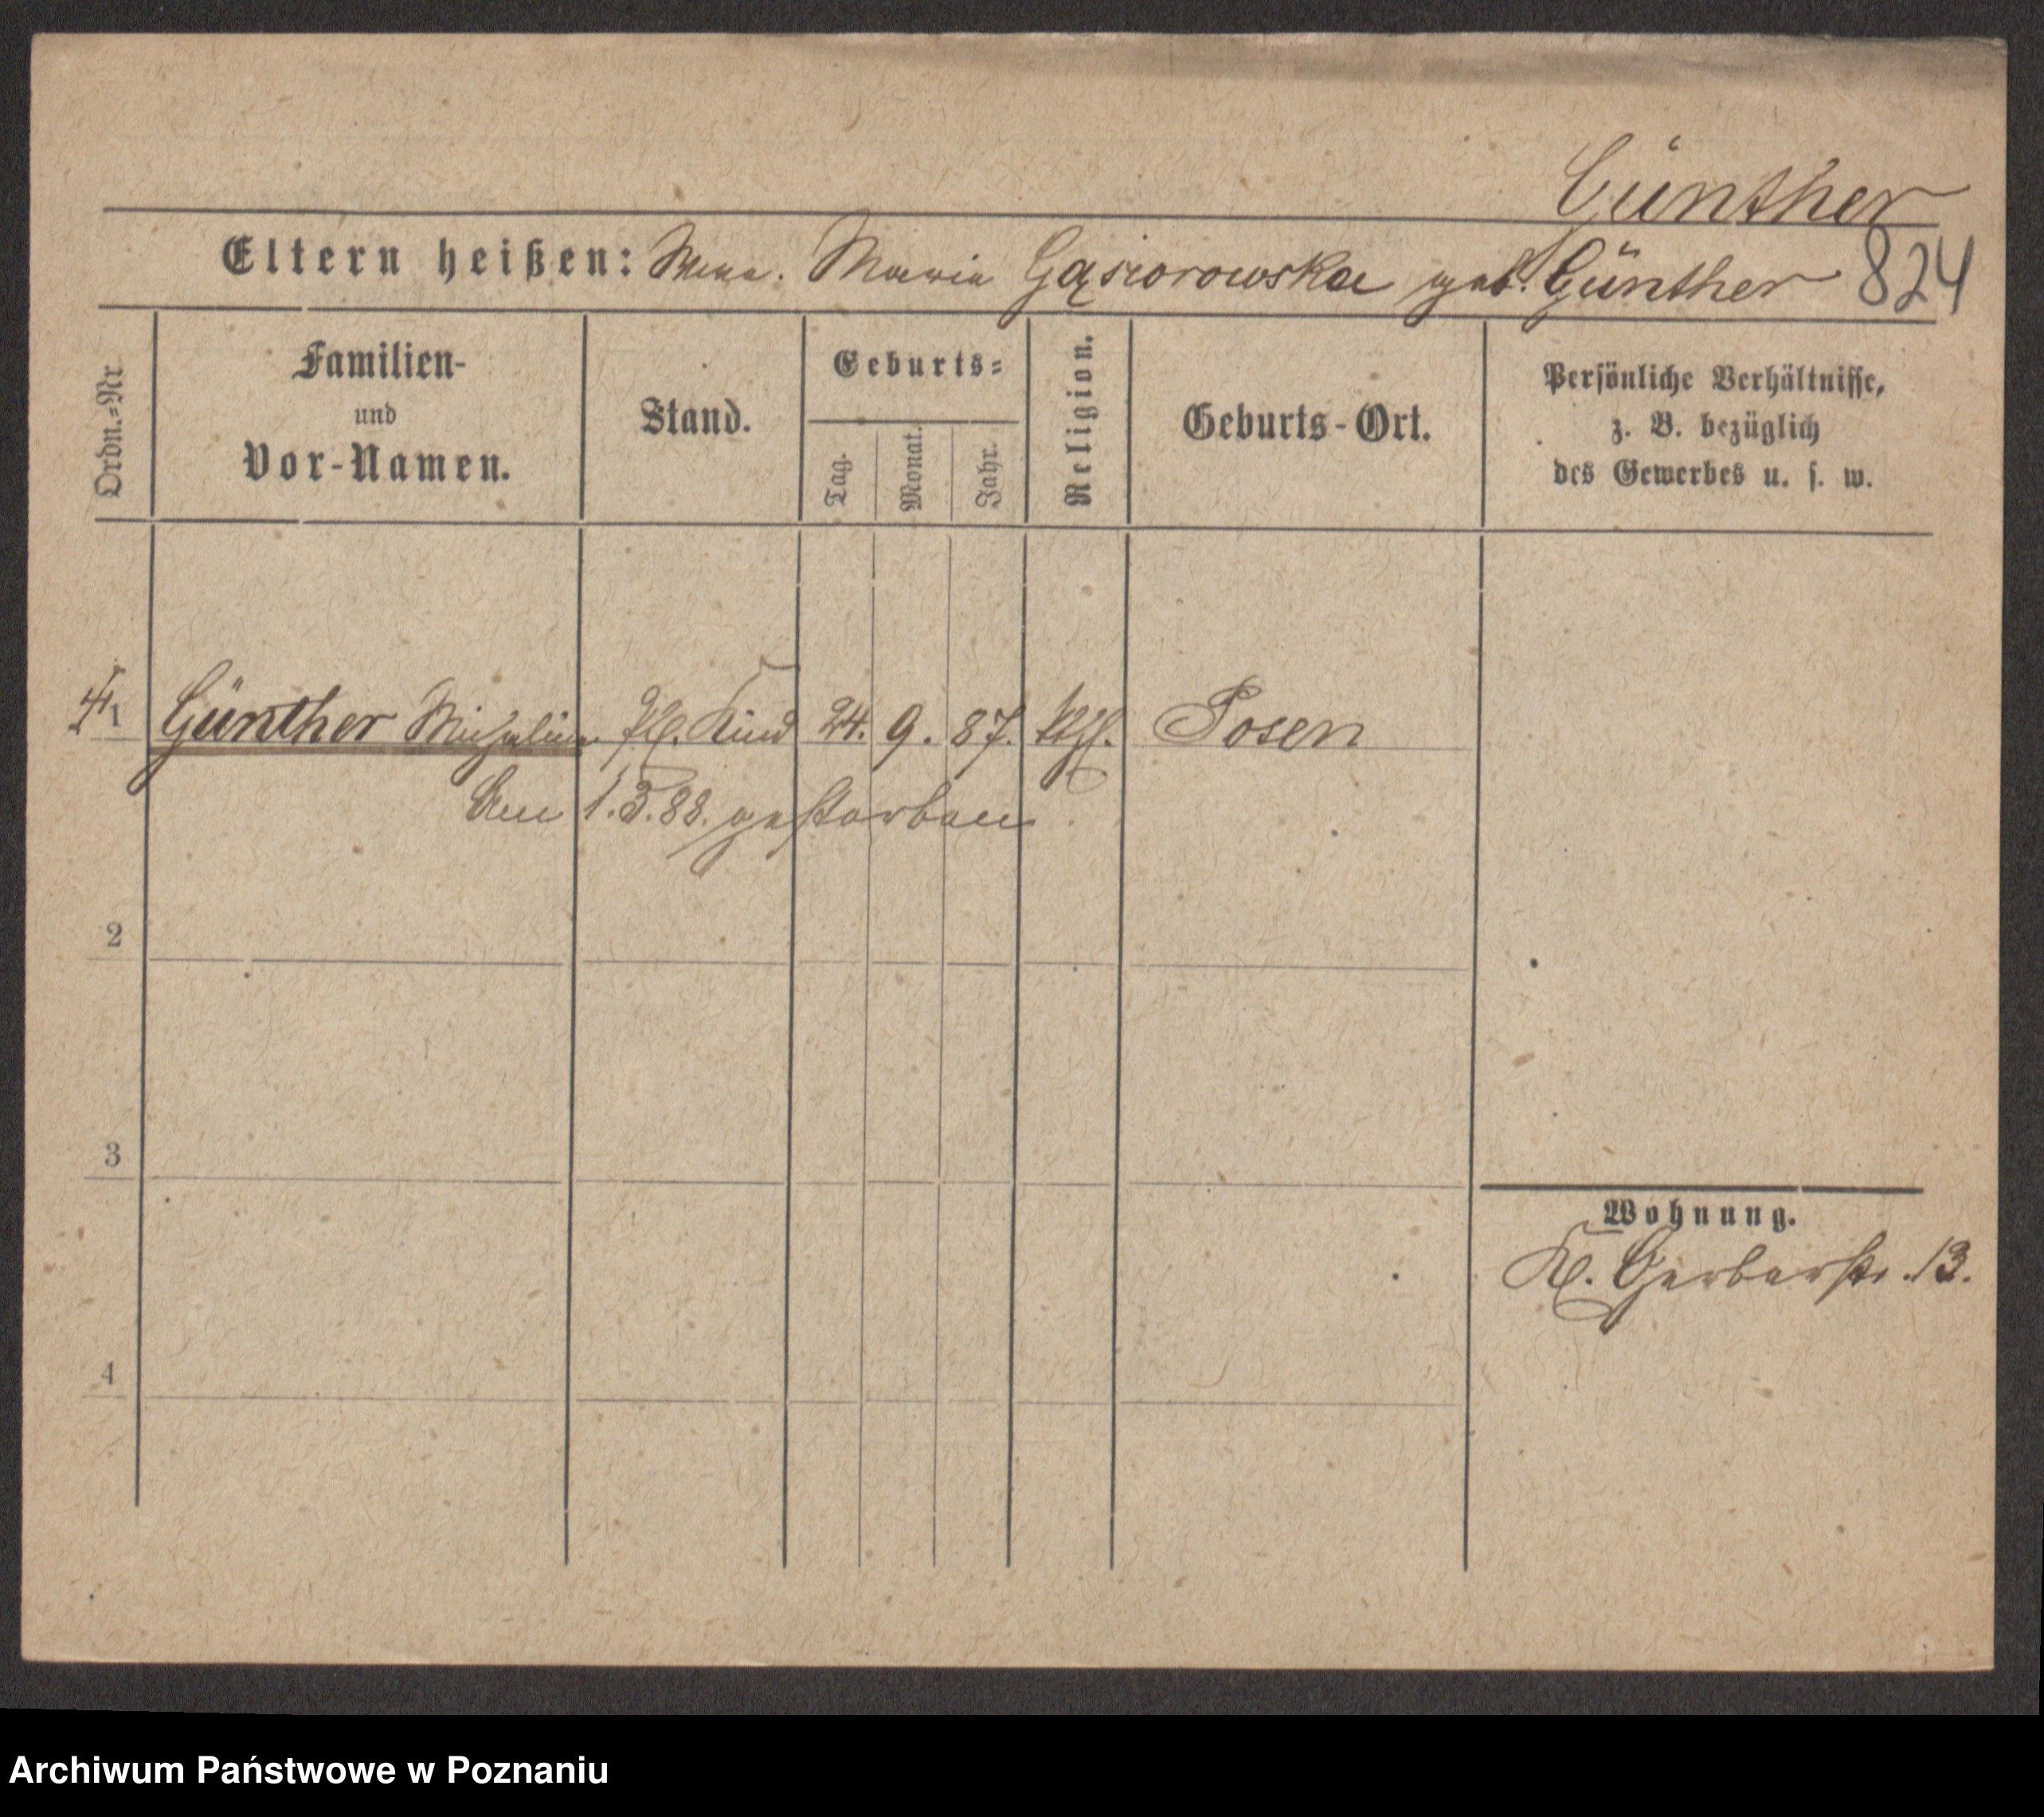 Günther
Eltern heißen: Wwe. Maria Gąsiorowska geb. Günther 824
Ordn.=Nr
Familien-
und
Vor-Namen.
Stand.
Geburts=
Tag.
Monat.
Jahr.
Religion.
Geburts-Ort.
Persönliche Verhältnisse,
z. B. bezüglich
des Gewerbes u. s. w.
1 Günther Michalina Pfl. Kind 24. 9. 87. kthl. Posen
Am 1.3.88. gestorben
2
3
Wohnung.
Kl. Gerberstr. 13.
4
Archiwum Państwowe w Poznaniu